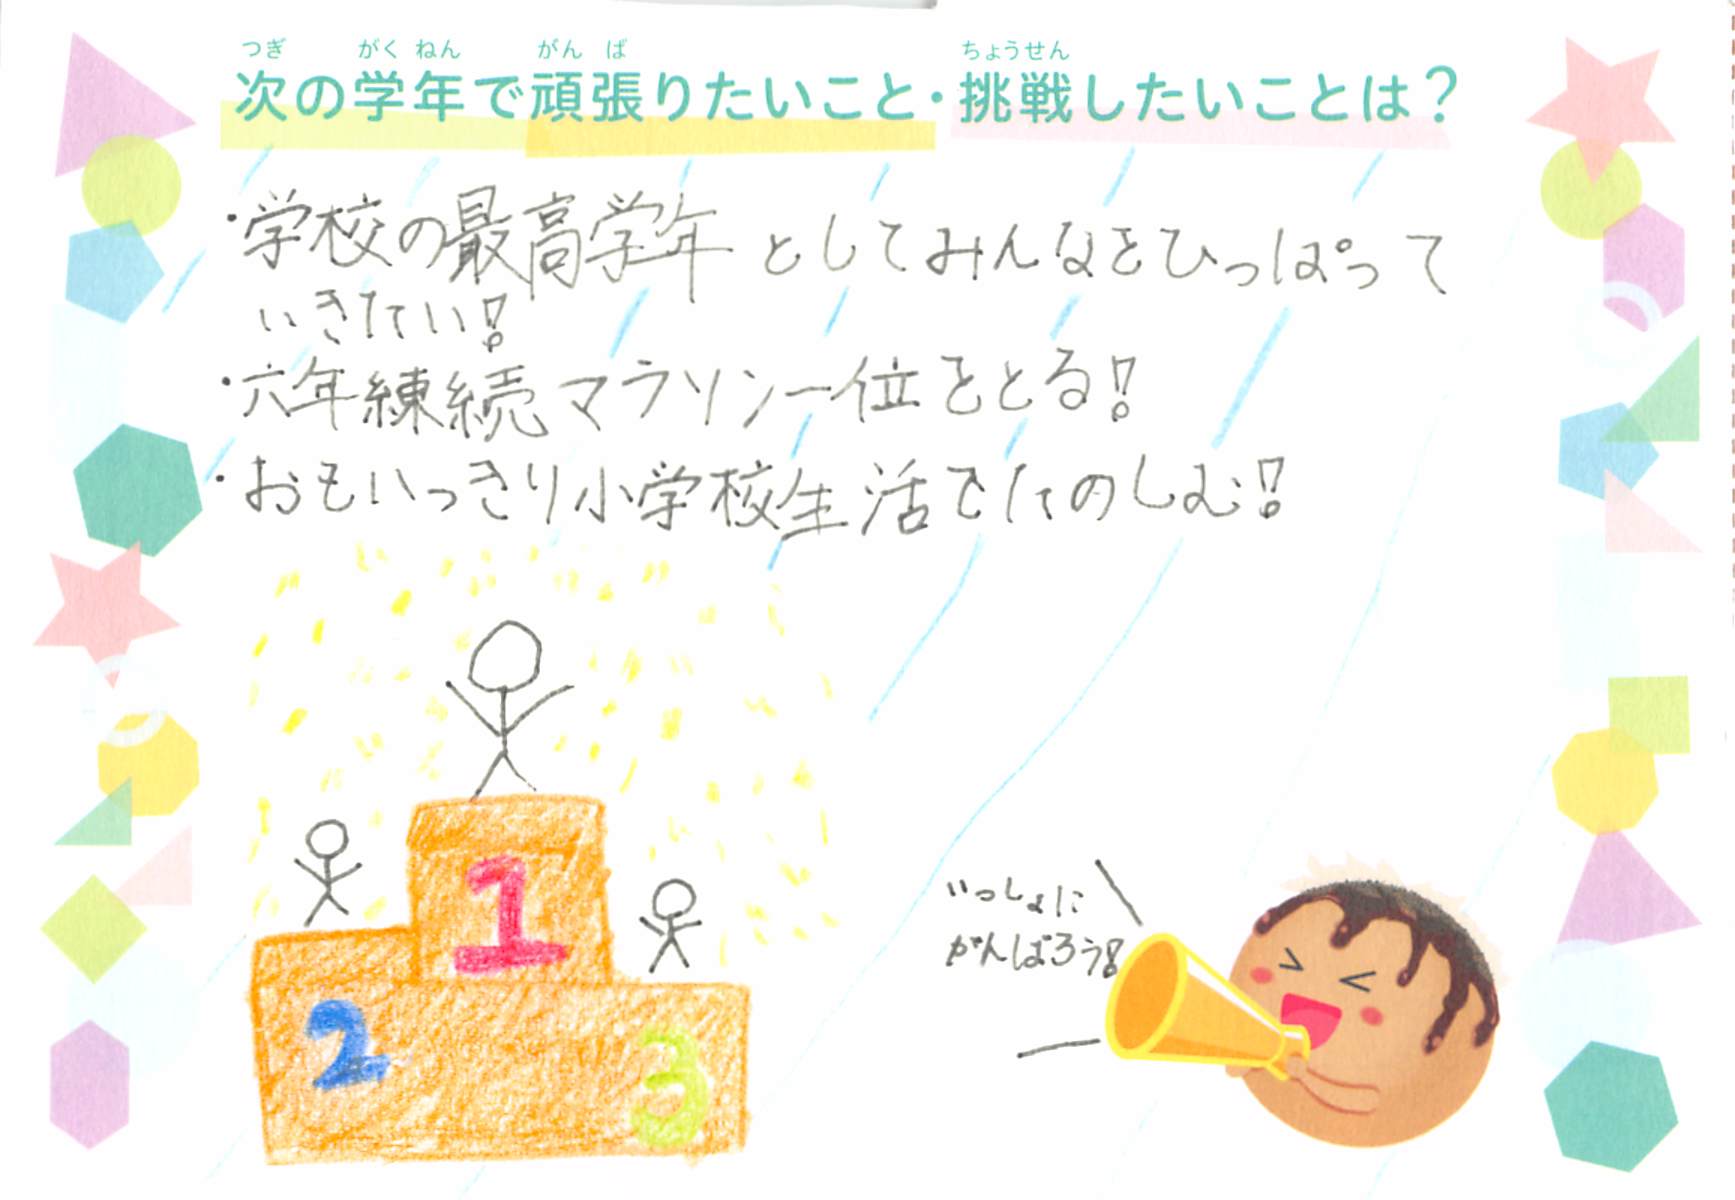 つぎ がくねん がんば ちょうせん
次の学年で頑張りたいこと・挑戦したいことは？
・学校の最高学年としてみんなをひっぱって
いきたい！
・六年練続マラソン一位をとる！
・おもいっきり小学校生活をたのしむ！
いっしょに
がんばろう！
1
2
3